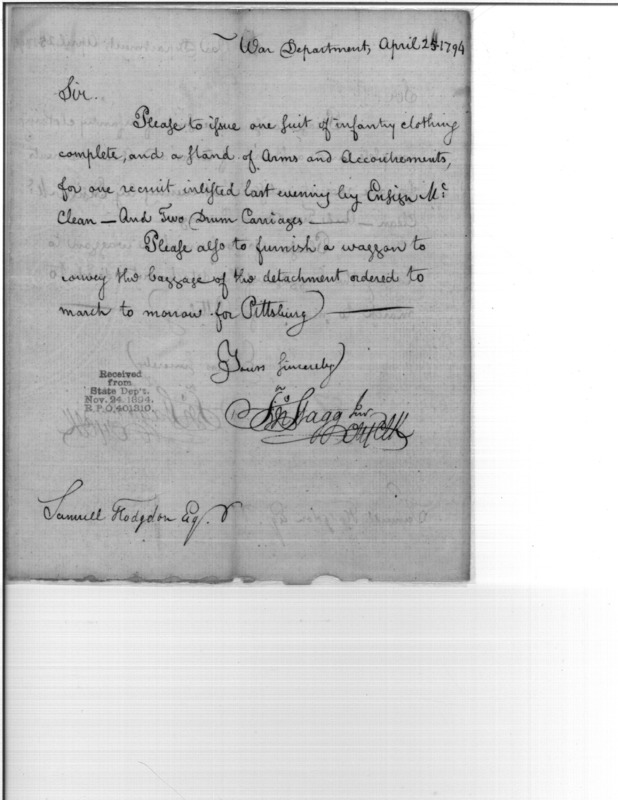 War Department, April 1794
Sir.
Please to issue one suit of infantry clothing
complete, and a stand of Arms and Accoutrements,
for one recruit inlisted last evening by Ensign Mc
Clean — And Two Drum Carriages —
Please also to furnish a waggon to
convey the baggage of the detachment ordered to
march to morrow for Pittsburg —
Yours Sincerely
Jno Stagg Junr
Received
from
State Dep't.
Nov. 24, 1894.
R.P.O. 401310.
Samuel Hodgdon Esqr